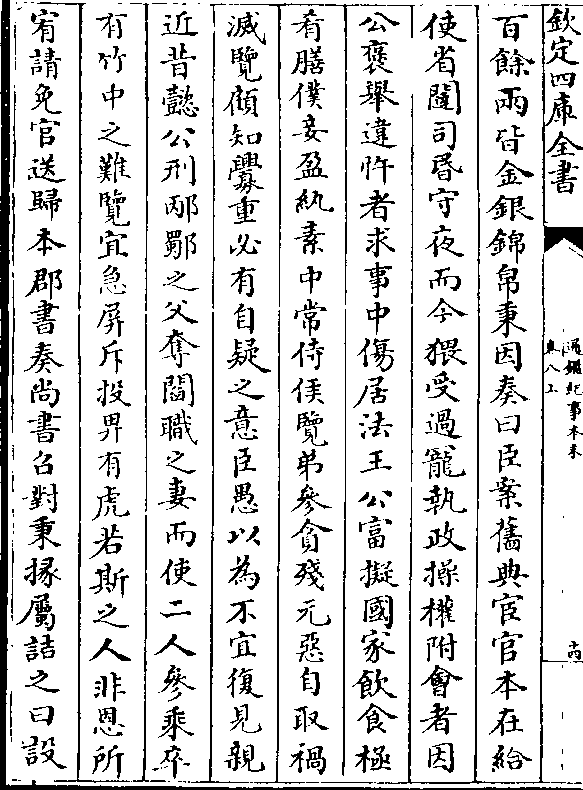 欽定四庫全書
通鑑紀事本末
卷八上
十四
百餘兩皆金銀錦帛秉因奏曰臣案舊典宦官本在給
使省闥司昏守夜而今猥受過寵執政操權附會者因
公褒舉違忤者求事中傷居法王公富擬國家飲食極
肴膳僕妾盈紈素中常侍侯覽弟參貪殘元惡自取禍
滅覽顧知釁重必有自疑之意臣愚以為不宜復見親
近昔懿公刑邴鄹之父奪閻職之妻而使二人參乘卒
有竹中之難覽宜急屏斥投畀有虎若斯之人非恩所
宥請免官送歸本郡書奏尚書召對秉掾屬詰之曰設